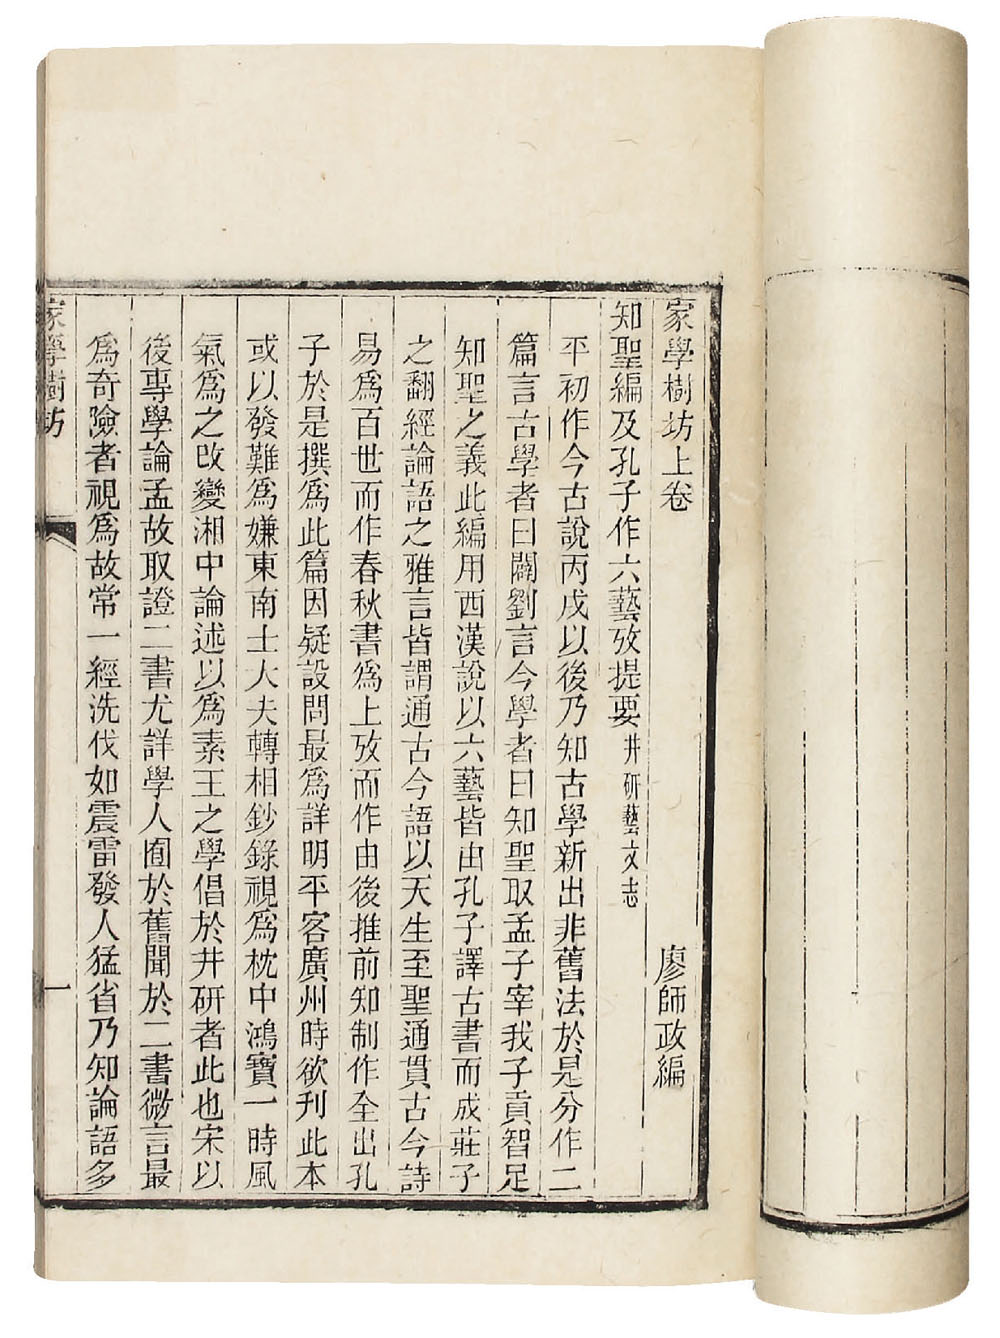 家學樹坊上卷 廖師政編
知聖編及孔子作六藝攷提要 井研藝文志
平初作今古說丙戌以後乃知古學新出非舊法於是分作二
篇言古學者曰闢劉言今學者曰知聖取孟子宰我子貢智足
知聖之義此編用西漢說以六藝皆由孔子譯古書而成莊子
之翻經論語之雅言皆謂通古今語以天生至聖通貫古今詩
易為百世而作春秋書為上攷而作由後推前知制作全出孔
子於是撰為此篇因疑設問最為詳明平客廣州時欲刊此本
或以發難為嫌東南士大夫轉相鈔錄視為枕中鴻寶一時風
氣為之改變湘中論述以為素王之學倡於井研者此也宋以
後專學論孟故取證二書尤詳學人囿於舊聞於二書微言最
為奇險者視為故常一經洗伐如震雷發人猛省乃知論語多
家學樹坊 一